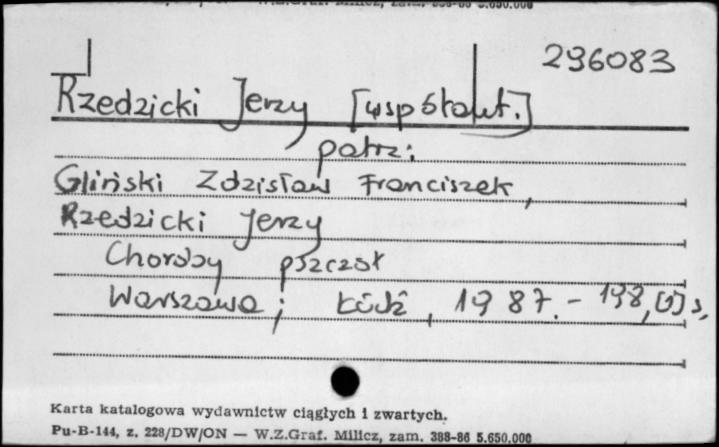 296083
Rzedzicki Jerzy [współaut.]
patrz:
Gliński Zdzisław Franciszek,
Rzedzicki Jerzy
Choroby pszczół
Warszawa; Łódź, 1987. - 198, [1] s,
Karta katalogowa wydawnictw ciągłych i zwartych.
Pu-B-144, z. 228/DW/ON — W.Z.Graf. Milicz, zam. 388-86 5.650.000